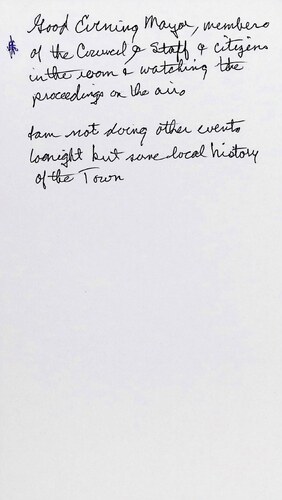 Good Evening Mayor, members
of the Council & Staff & citizens
in the room & watching the
proceedings on the airs
I am not doing other events
tonight but some local history
of the Town